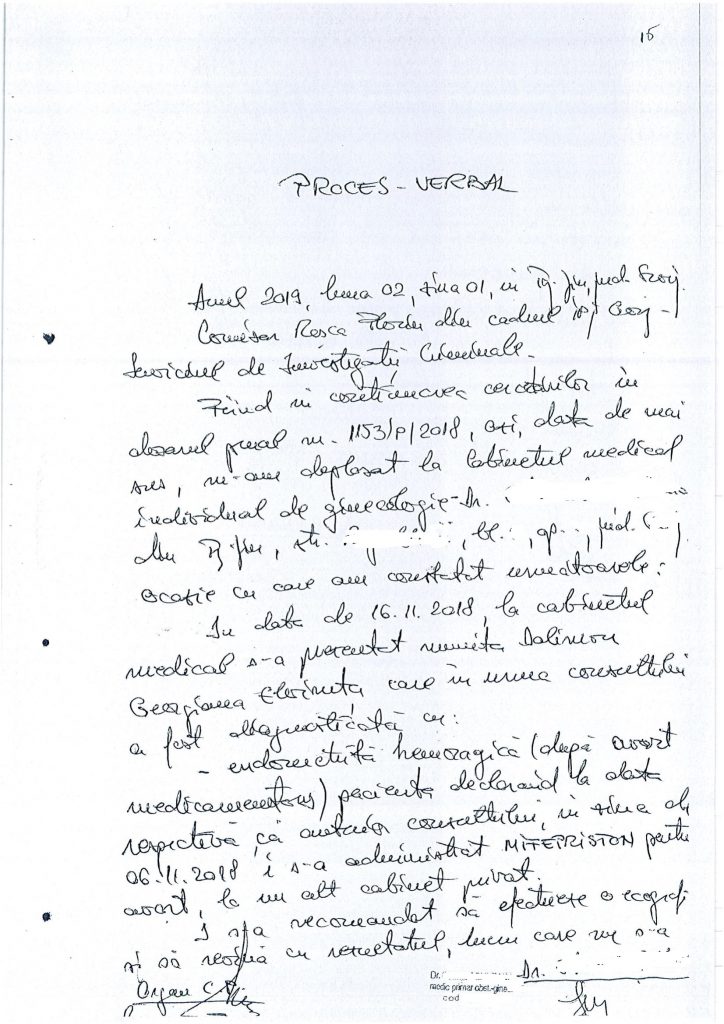 15
PROCES - VERBAL
Anul 2019, luna 02, ziua 01, in Tg. Jiu, jud. Gorj.
Comisar Roșca Florin din cadrul IPJ Gorj -
Serviciul de Investigații Criminale.
Fiind in continuarea cercetărilor în
dosarul penal nr. 1153/P/2018, azi, data de mai
sus, m-am deplasat la Cabinetul medical
individual de ginecologie - Dr.
din Tg Jiu, str. , bl. , ap. , jud. G
ocazie cu care am constatat următoarele:
In data de 16.11.2018, la cabinetul
medical s-a prezentat numita
Georgiana care în urma consultului
a fost diagnosticată cu:
- endometrită hemoragică (după avort
medicamentos) pacienta declarand la data
respectivă că anterior consultului, in ziua de
06.11.2018 i s-a administrat MIFEPRISTON pentru
avort, la un alt cabinet privat.
I s-a recomandat să efectueze o ecografi
si să revină cu rezultatul, lucru care nu s-a
Organ C Dr.
Dr.
medic primar obst.-gine
cod